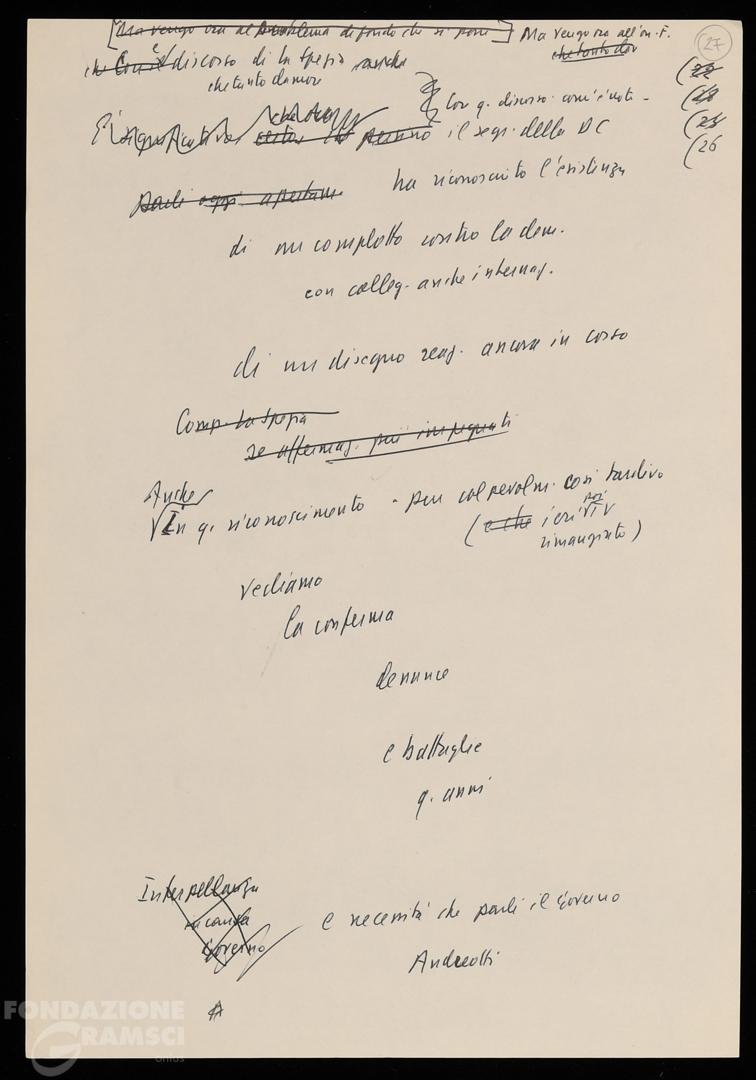 [Ma vengo ora al problema di fondo che si pone] Ma vengo ora all'on. F.
che tanto
discorso di La Spezia anche
che tanto clamore
27
22
26
Con q. discorso com'è noto -
È significativo il segr. della DC
Parli oggi apertam. ha riconosciuto l'esistenza
di un complotto contro la dem.
con colleg. anche internaz.
di un disegno reaz. ancora in corso
Comp. La Spezia
se affermaz. più impegnati
Anche
In q. riconoscimento - pur colpevolm. così tardivo
(e che ieri poi TV
rimangiato)
vediamo
la conferma
denunce
e battaglie
q. anni
Interpellanza
Governo
e necessità che parli il Governo
Andreotti
A
FONDAZIONE
GRAMSCI
onlus